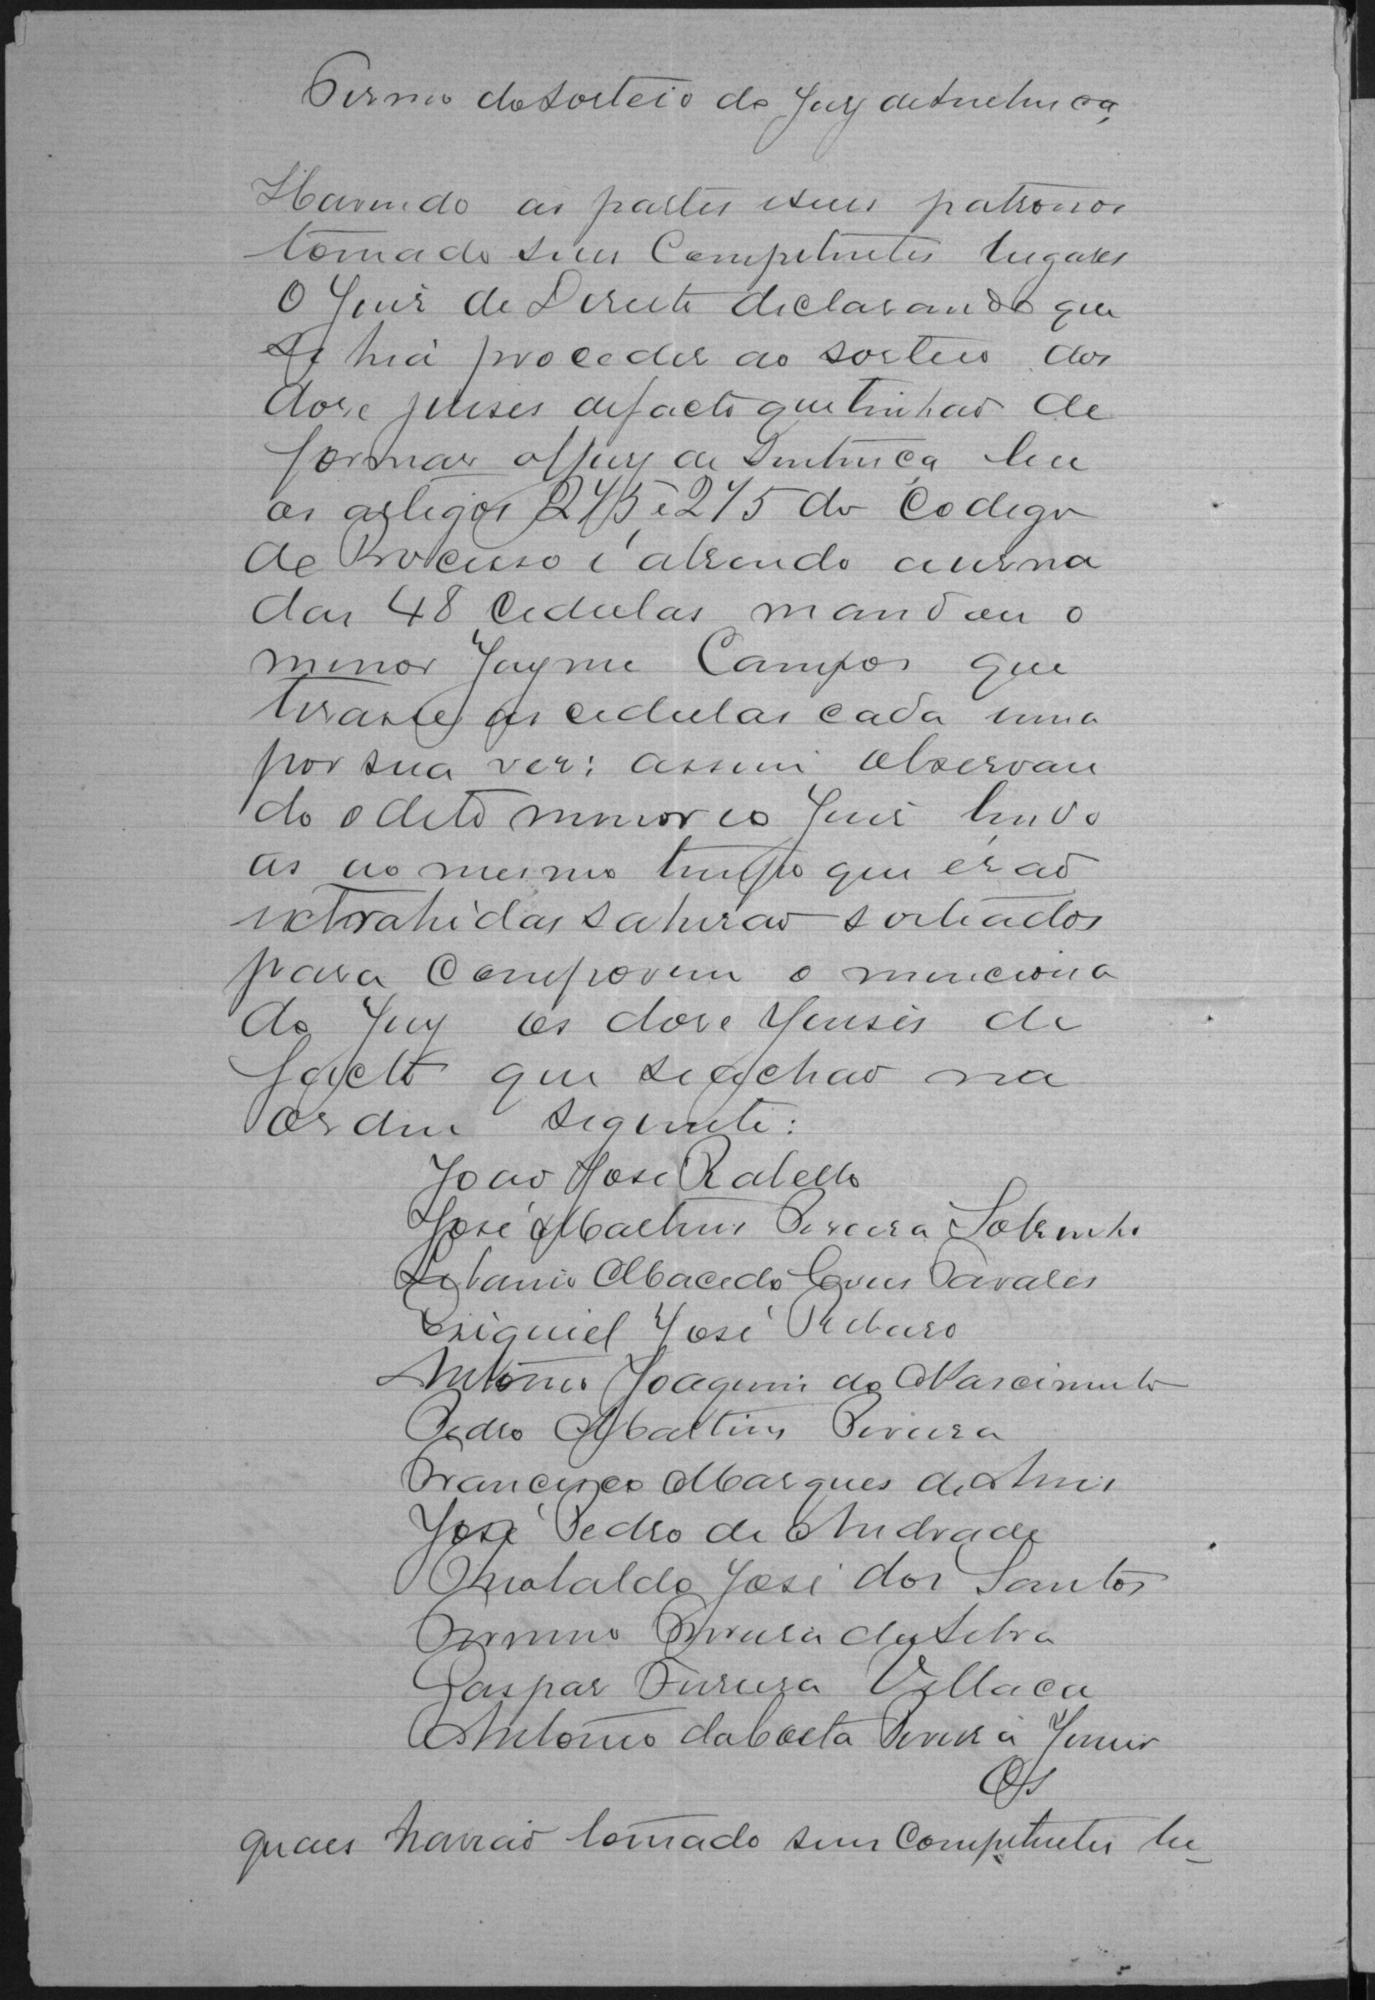 Termo do Sorteio do Jury de Sentença
Havendo as partes e seus patronos
tomado seus Competentes lugares
O Juis de Direito declarando que
se hia proceder ao sorteio dos
dose juises de facto que tinhão de
formar o Jury de Sentença leu
os artigos 275 e 275 do Codego
de Processo e abrindo a urna
das 48 Cedulas mandou o
menor Jayme Campos que
tirasse as cedulas cada uma
por sua ves: assim observan
do o dito menor e o Juis lendo
as ao mesmo tempo que érão
extrahidas sahirão sorteados
para Comporem o menciona
do Jury os dose Juises de
facto que se achão na
ordem seguinte:
João José Rabello
José Martins Pereira Sobrinho
Macedo Tavares
Ezequiel José Ribeiro
Antonio Joaquim do Nascimento
Pedro Martins Pereira
Francisco Marques de
José Pedro de Andrade
José dos Santos
Firmino Ferreira da Silva
Gaspar Ferreira Villaça
Antonio da Costa Pereira Junior
Os
quaes havião tomado seus Competentes lu_